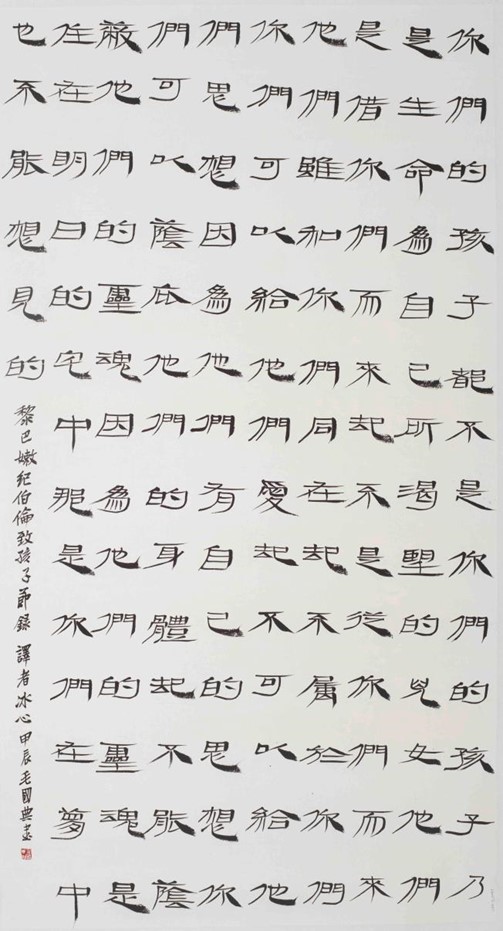 你們的孩子都不是你們的孩子乃
是生命為自己所渴望的兒女他們
是借你們而來却不是從你們而來
他們雖和你們同在却不屬於你們
你們可以給他們愛却不可以給他
們思想因為他們有自己的思想你
們可以蔭庇他們的身體却不能蔭
蔽他們的靈魂因為他們的靈魂是
住在明日的宅中那是你們在夢中
也不能想見的
黎巴嫩紀伯倫致孩子節錄 譯者冰心甲辰毛國典書